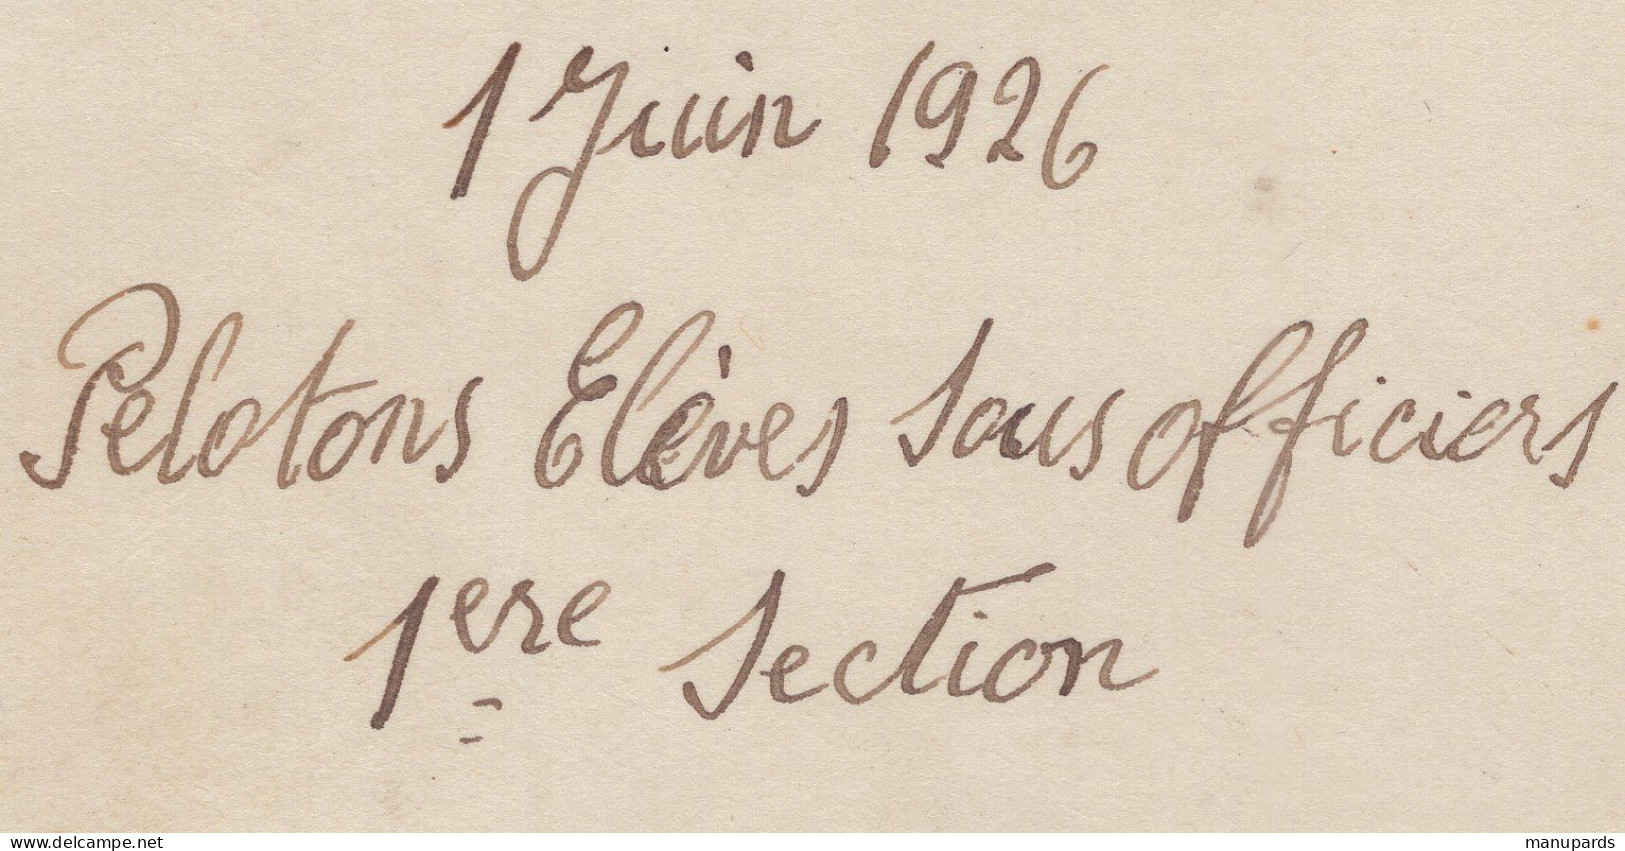 1 Juin 1926
Pelotons Elèves Sous officiers
1ere Section
www.delcampe.net
manupards